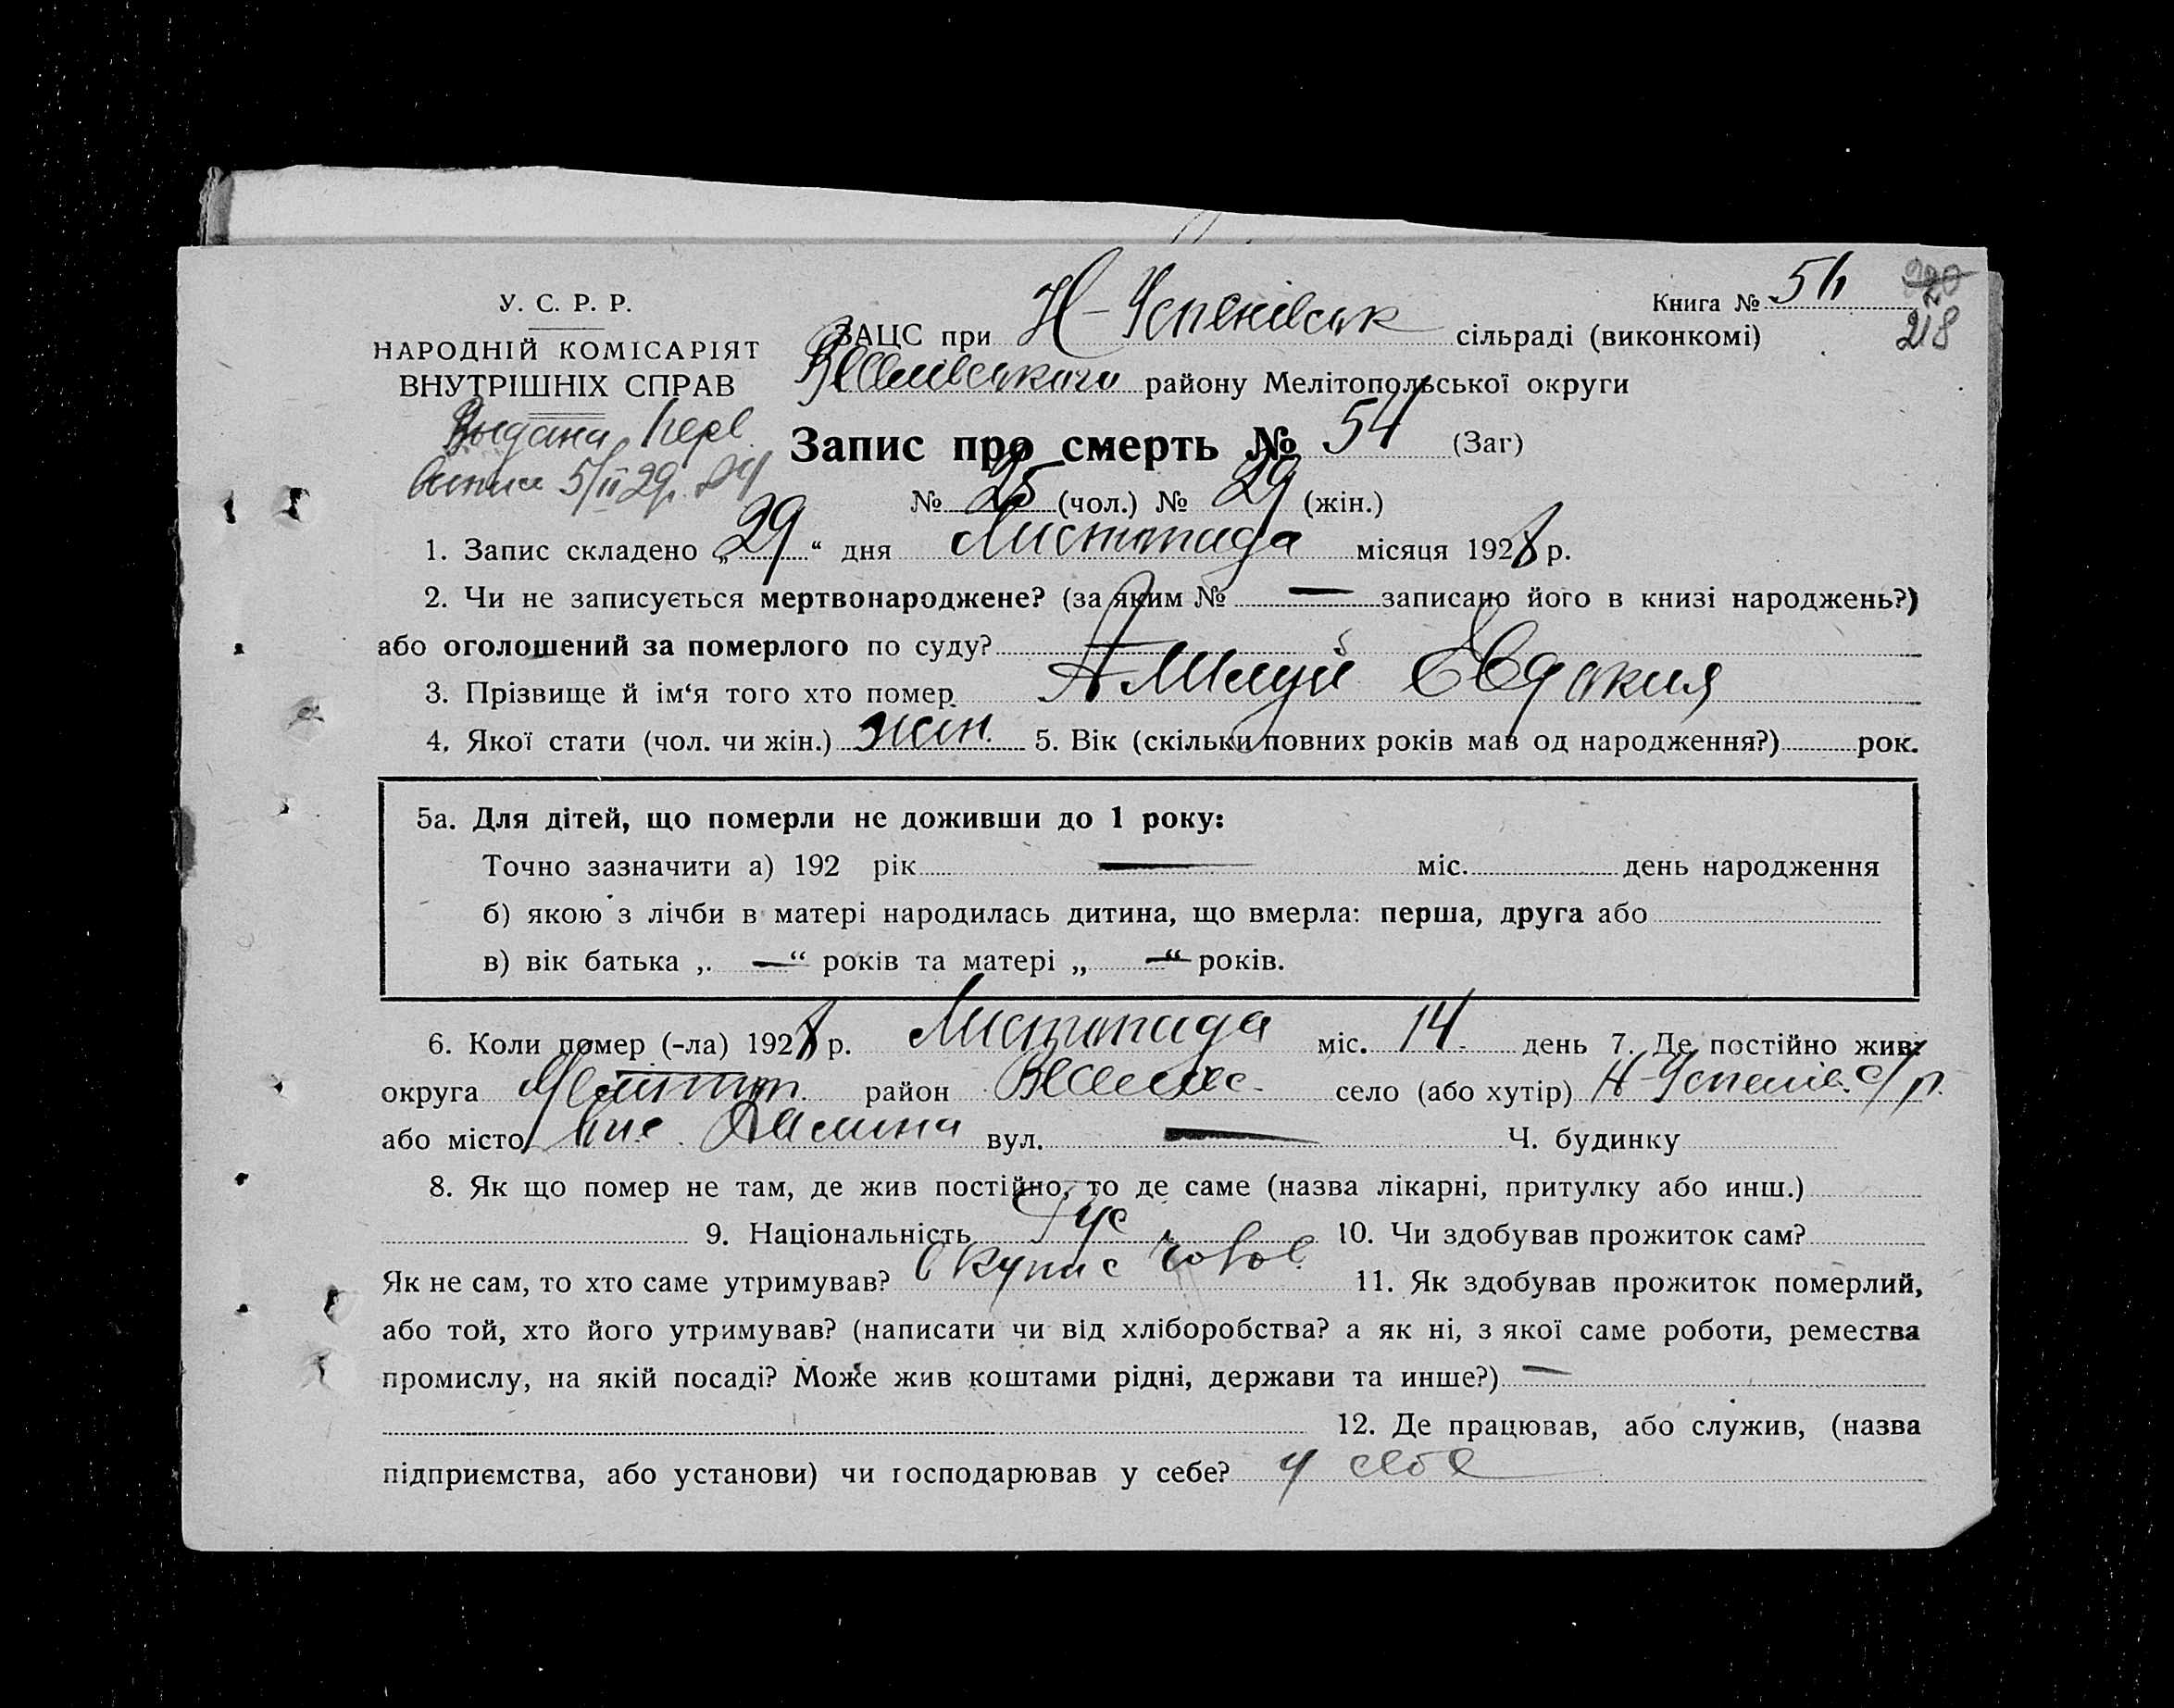 У. С. Р. Р.
НАРОДНІЙ КОМІСАРІЯТ
ВНУТРІШНІХ СПРАВ
Книга № 54
218
ЗАЦС при Н-Успенівськ сільраді (виконкомі)
Веселівського району Мелітопольської округи
Выдана
5/II 29р.
Запис про смерть № 54 (Заг)
№ 25 (чол.) № 29 (жін.)
1. Запис складено „29“ дня Листопада місяця 1928 р.
2. Чи не записується мертвонароджене? (за яким № — записано його в книзі народжень?)
або оголошений за померлого по суду?
3. Прізвище й ім‘я того хто помер Евдокия
4. Якої стати (чол. чи жін.) жін. 5. Вік (скільки повних років мав од народження?) рок.
5а. Для дітей, що померли не доживши до 1 року:
Точно зазначити а) 192 рік — міс. день народження
б) якою з лічби в матері народилась дитина, що вмерла: перша, друга або
в) вік батька „ —“ років та матері „ —“ років.
6. Коли помер (-ла) 1928 р. Листопада міс. 14 день 7. Де постійно жив:
округа Мелітоп. район село (або хутір) Н-Успенів. с/р.
або місто вул. — Ч. будинку
8. Як що помер не там, де жив постійно, то де саме (назва лікарні, притулку або инш.)
9. Національність Рус 10. Чи здобував прожиток сам?
Як не сам, то хто саме утримував? 11. Як здобував прожиток померлий,
або той, хто його утримував? (написати чи від хліборобства? а як ні, з якої саме роботи, ремества
промислу, на якій посаді? Може жив коштами рідні, держави та инше?) —
12. Де працював, або служив, (назва
підприємства, або установи) чи господарював у себе? у себе